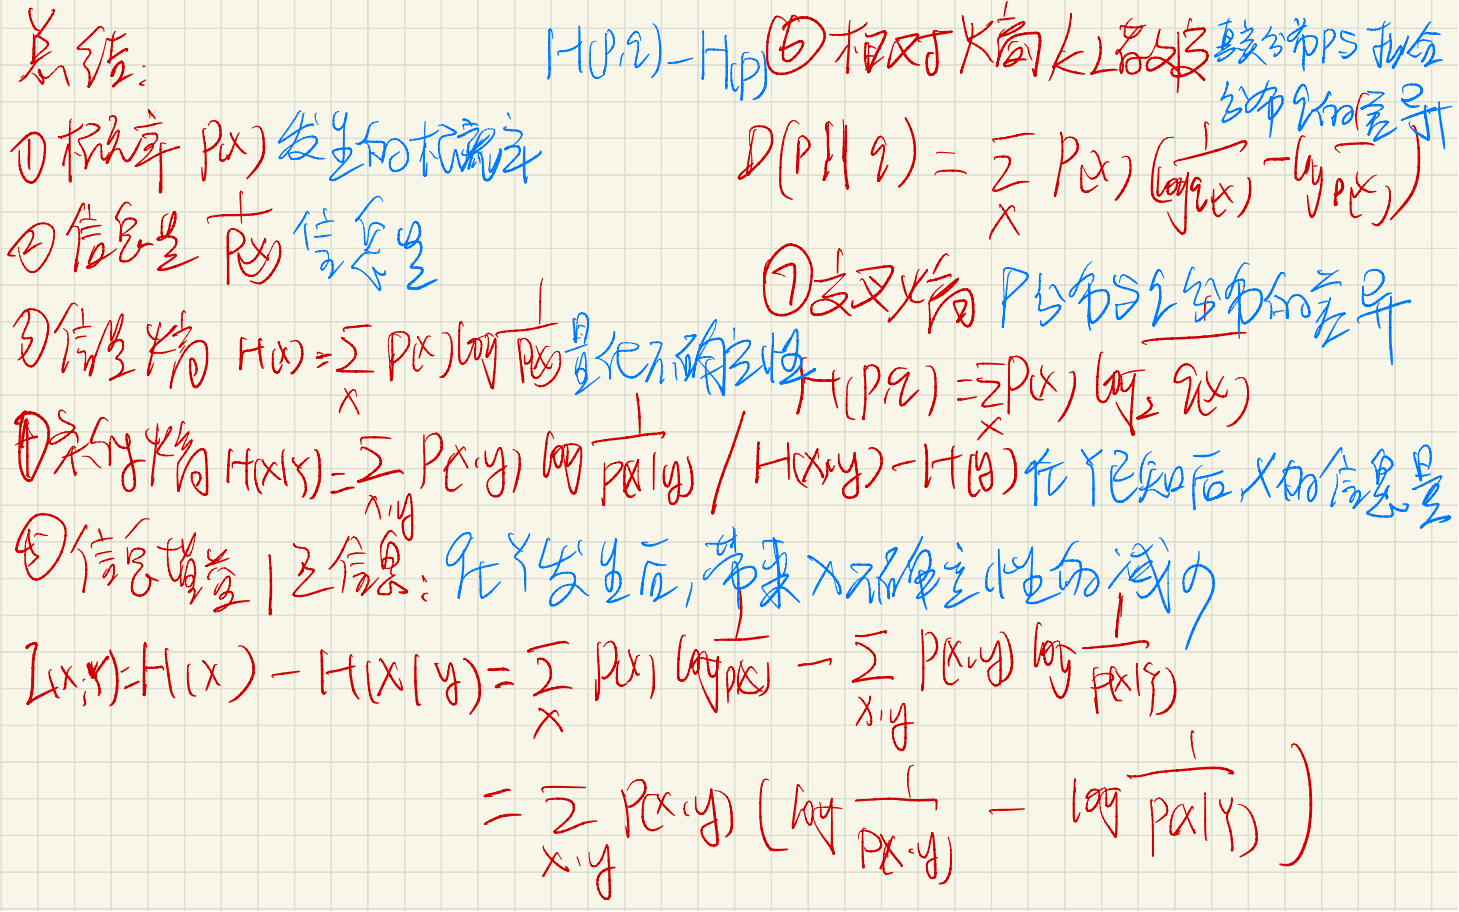 总结:
① 概率 P(x) 发生的概率
② 信息量 1/P(x) 信息量
③ 信息熵 H(x)=∑x P(x) log 1/P(x) 量化不确定性
④ 条件熵 H(X|Y)=∑x,y P(x,y) log 1/P(x|y) / H(x,y)-H(y) 在Y已知后,X的信息量
⑤ 信息增益|互信息: 在Y发生后,带来X不确定性的减少
I(x;Y)=H(x)-H(x|y)=∑x P(x) log 1/P(x) - ∑x,y P(x,y) log 1/P(x|Y)
=∑x,y P(x,y) (log 1/P(x,y) - log 1/P(x|Y))
H(P,q)-H(p)
⑥ 相对熵 KL散度 真实分布P与拟合
分布q的差异
D(P||q)=∑x P(x) (log 1/q(x) - log 1/P(x))
⑦ 交叉熵 P分布与q分布的差异
H(P,q)=∑x P(x) log₂ q(x)